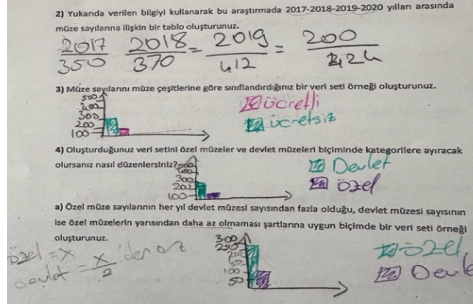 2) Yukarıda verilen bilgiyi kullanarak bu araştırmada 2017-2018-2019-2020 yılları arasında
müze sayılarına ilişkin bir tablo oluşturunuz.
2017 2018 = 2019 = 200
350 370 412 424
3) Müze sayılarını müze çeşitlerine göre sınıflandırdığınız bir veri seti örneği oluşturunuz.
500
400
300
200
100
ücretli
ücretsiz
4) Oluşturduğunuz veri setini özel müzeler ve devlet müzeleri biçiminde kategorilere ayıracak
olursanız nasıl düzenlersiniz?
300
200
100
Devlet
özel
a) Özel müze sayılarının her yıl devlet müzesi sayısından fazla olduğu, devlet müzesi sayısının
ise özel müzelerin yarısından daha az olmaması şartlarına uygun biçimde bir veri seti örneği
oluşturunuz.
özel = x
devlet = x/2 'den az
300
250
100
50
özel
Devle